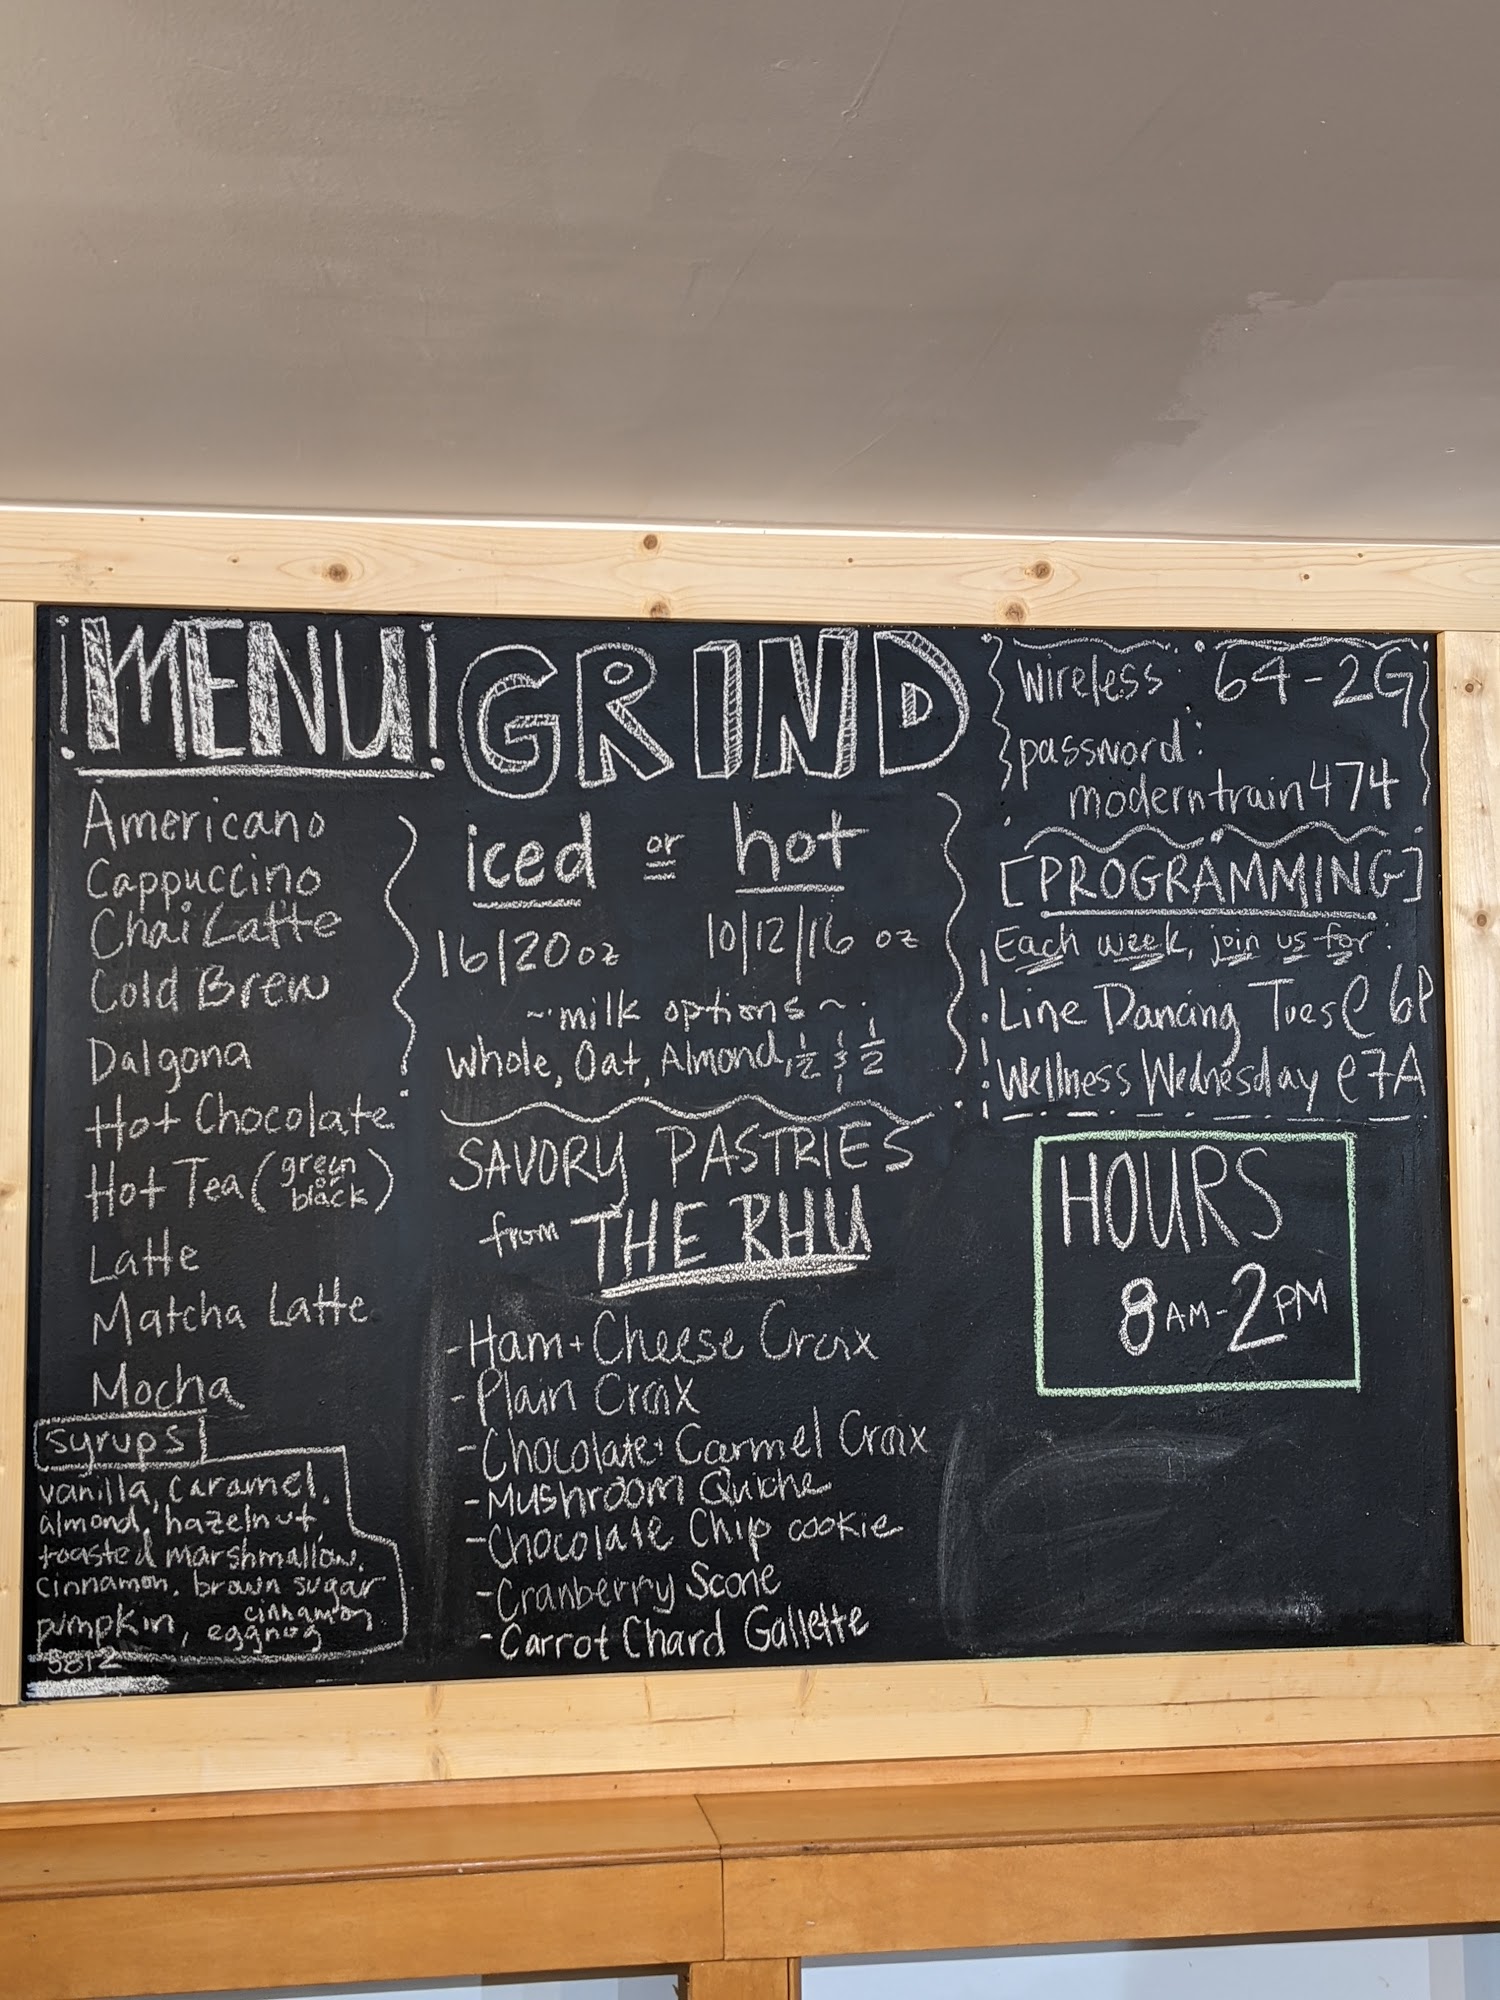 ¡MENU!
Americano
Cappuccino
Chai Latte
Cold Brew
Dalgona
Hot Chocolate
Hot Tea (green or black)
Latte
Matcha Latte
Mocha
syrups
vanilla, caramel,
almond, hazelnut,
toasted marshmallow,
cinnamon, brown sugar
cinnamon
pumpkin, eggnog
GRIND
iced or hot
16/20 oz 10/12/16 oz
~ milk options ~
Whole, Oat, Almond, 1/2 & 1/2
SAVORY PASTRIES
from THE RHU
- Ham + Cheese Croix
- Plain Croix
- Chocolate + Carmel Croix
- Mushroom Quiche
- Chocolate Chip cookie
- Cranberry Scone
- Carrot Chard Gallette
wireless: 64-2G
password:
moderntrain474
[PROGRAMMING]
Each week, join us for:
Line Dancing Tues @ 6P
Wellness Wednesday @ 7A
HOURS
8AM-2PM